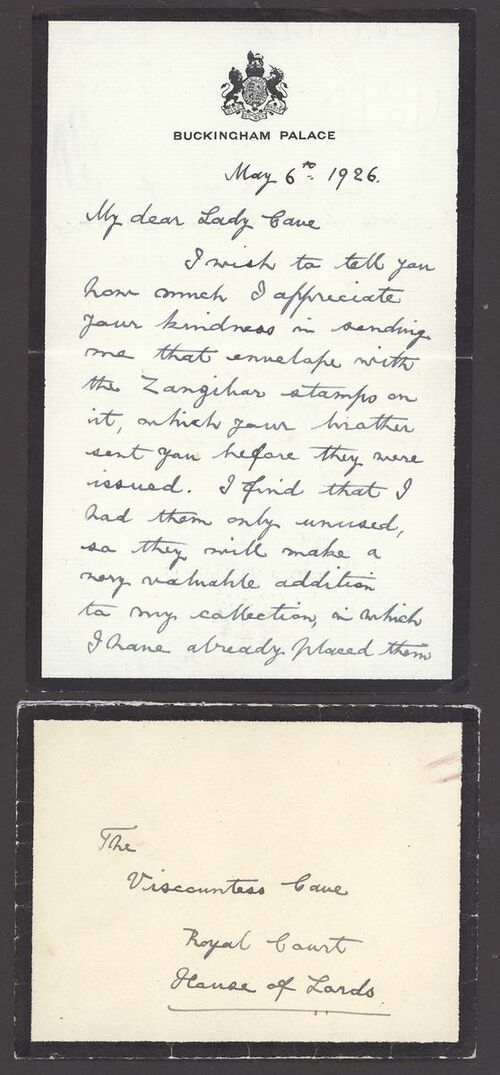 BUCKINGHAM PALACE
May 6th 1926.
My dear Lady Cave
I wish to tell you
how much I appreciate
your kindness in sending
me that envelope with
the Zanzibar stamps on
it, which your brother
sent you before they were
issued. I find that I
had them only unused,
so they will make a
very valuable addition
to my collection, in which
I have already placed them
The
Viscountess Cave
Royal Court
House of Lords